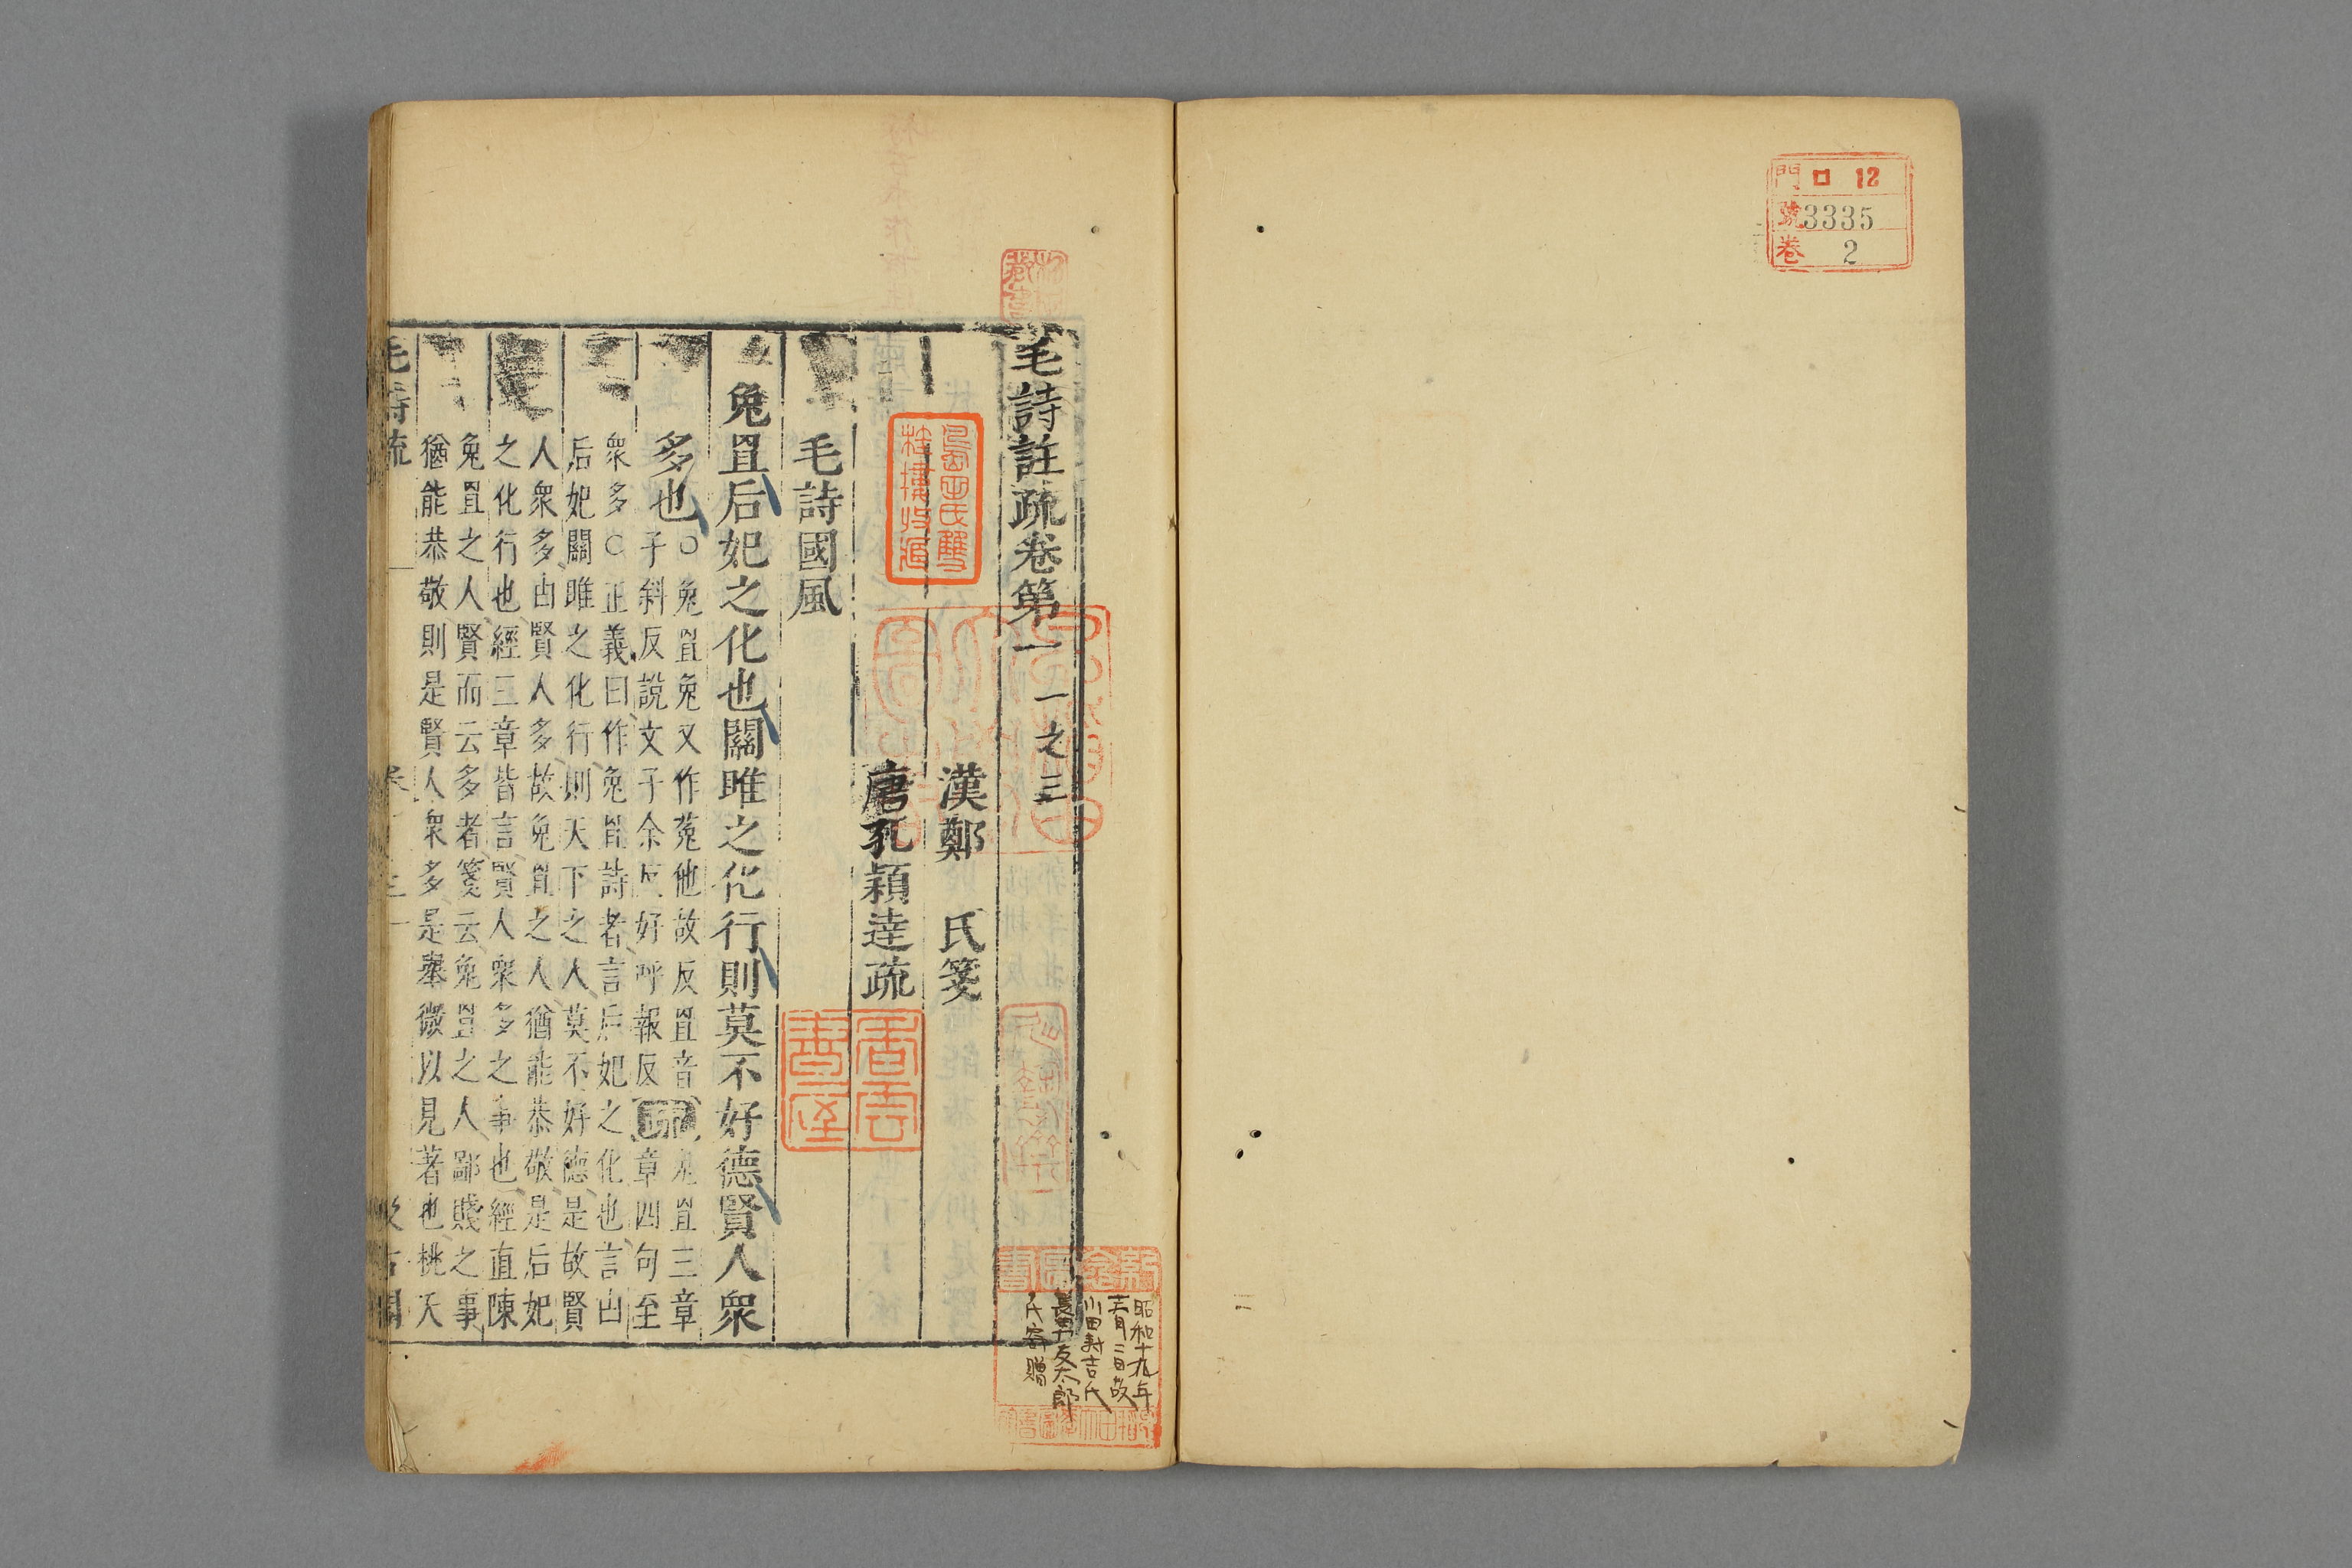 門 口 12
號 3335
卷 2
毛詩註疏卷第一 一之三
漢鄭 氏箋
唐孔穎達疏
毛詩國風
兔罝后妃之化也關雎之化行則莫不好德賢人衆
多也
○兔罝兔又作菟他故反罝音
子斜反說文子余反好呼報反
疏
兔罝三章
章四句至
衆多○正義曰作兔罝詩者言后妃之化也言由
后妃關雎之化行則天下之人莫不好德是故賢
人衆多由賢人多故兔罝之人猶能恭敬是后妃
之化行也經三章皆言賢人衆多之事也經直陳
兔罝之人賢而云多者箋云兔罝之人鄙賤之事
猶能恭敬則是賢人衆多是舉微以見著也桃夭
毛詩疏
香雲書屋
昭和十九年
二日故
小田
吉氏
長男友太郎
氏寄贈